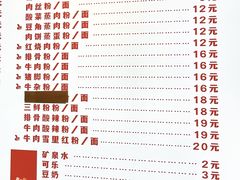 肉丝粉/面 12元
酸菜蒸肉粉/面 12元
豆角蒸肉粉/面 12元
肉饼蒸蛋粉/面 12元
红烧肉粉/面 16元
牛肉粉/面 16元
排骨粉/面 16元
猪脚粉/面 16元
牛杂粉/面 16元
/面 18元
三鲜粉/面 18元
排骨酸辣粉/面 19元
牛肉酸辣粉/面 19元
牛肉雪里红粉/面 20元
矿泉水 2元
可乐 3元
豆奶